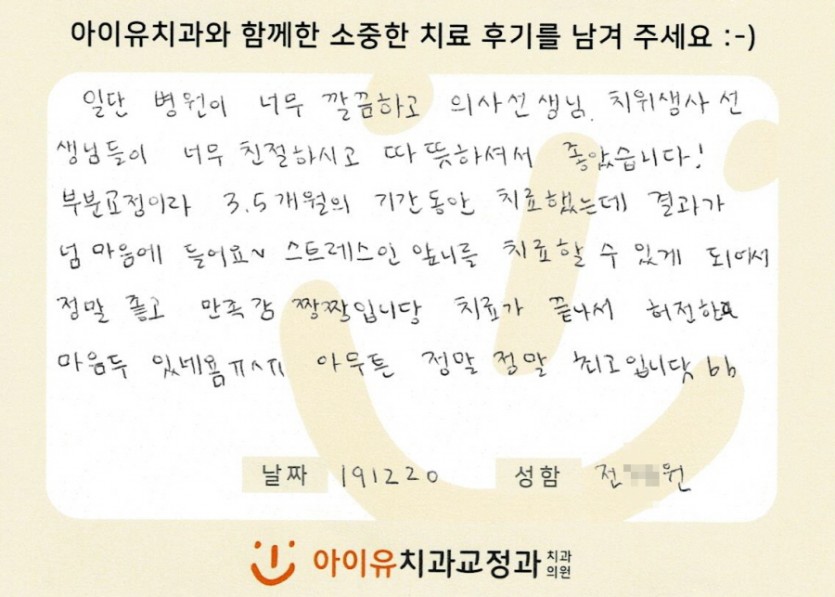 아이유치과와 함께한 소중한 치료 후기를 남겨 주세요 :-)
일단 병원이 너무 깔끔하고 의사선생님, 치위생사 선
생님들이 너무 친절하시고 따뜻하셔서 좋았습니다!
부분교정이라 3.5개월의 기간동안 치료했는데 결과가
넘 마음에 들어요~ 스트레스인 앞니를 치료할 수 있게 되어서
정말 좋고 만족감 짱짱입니당 치료가 끝나서 허전한
마음두 있네욤ㅠㅅㅠ 아무튼 정말 정말 최고입니닷 bb
날짜 191220 성함 전 원
아이유치과교정과 치과의원